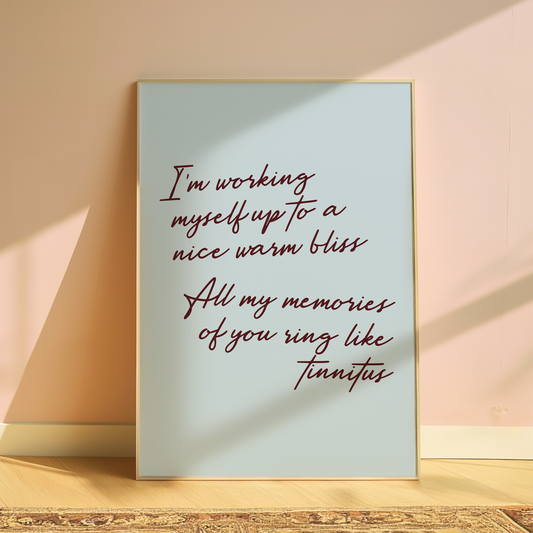 I'm working
myself up to a
nice warm bliss
All my memories
of you ring like
tinnitus